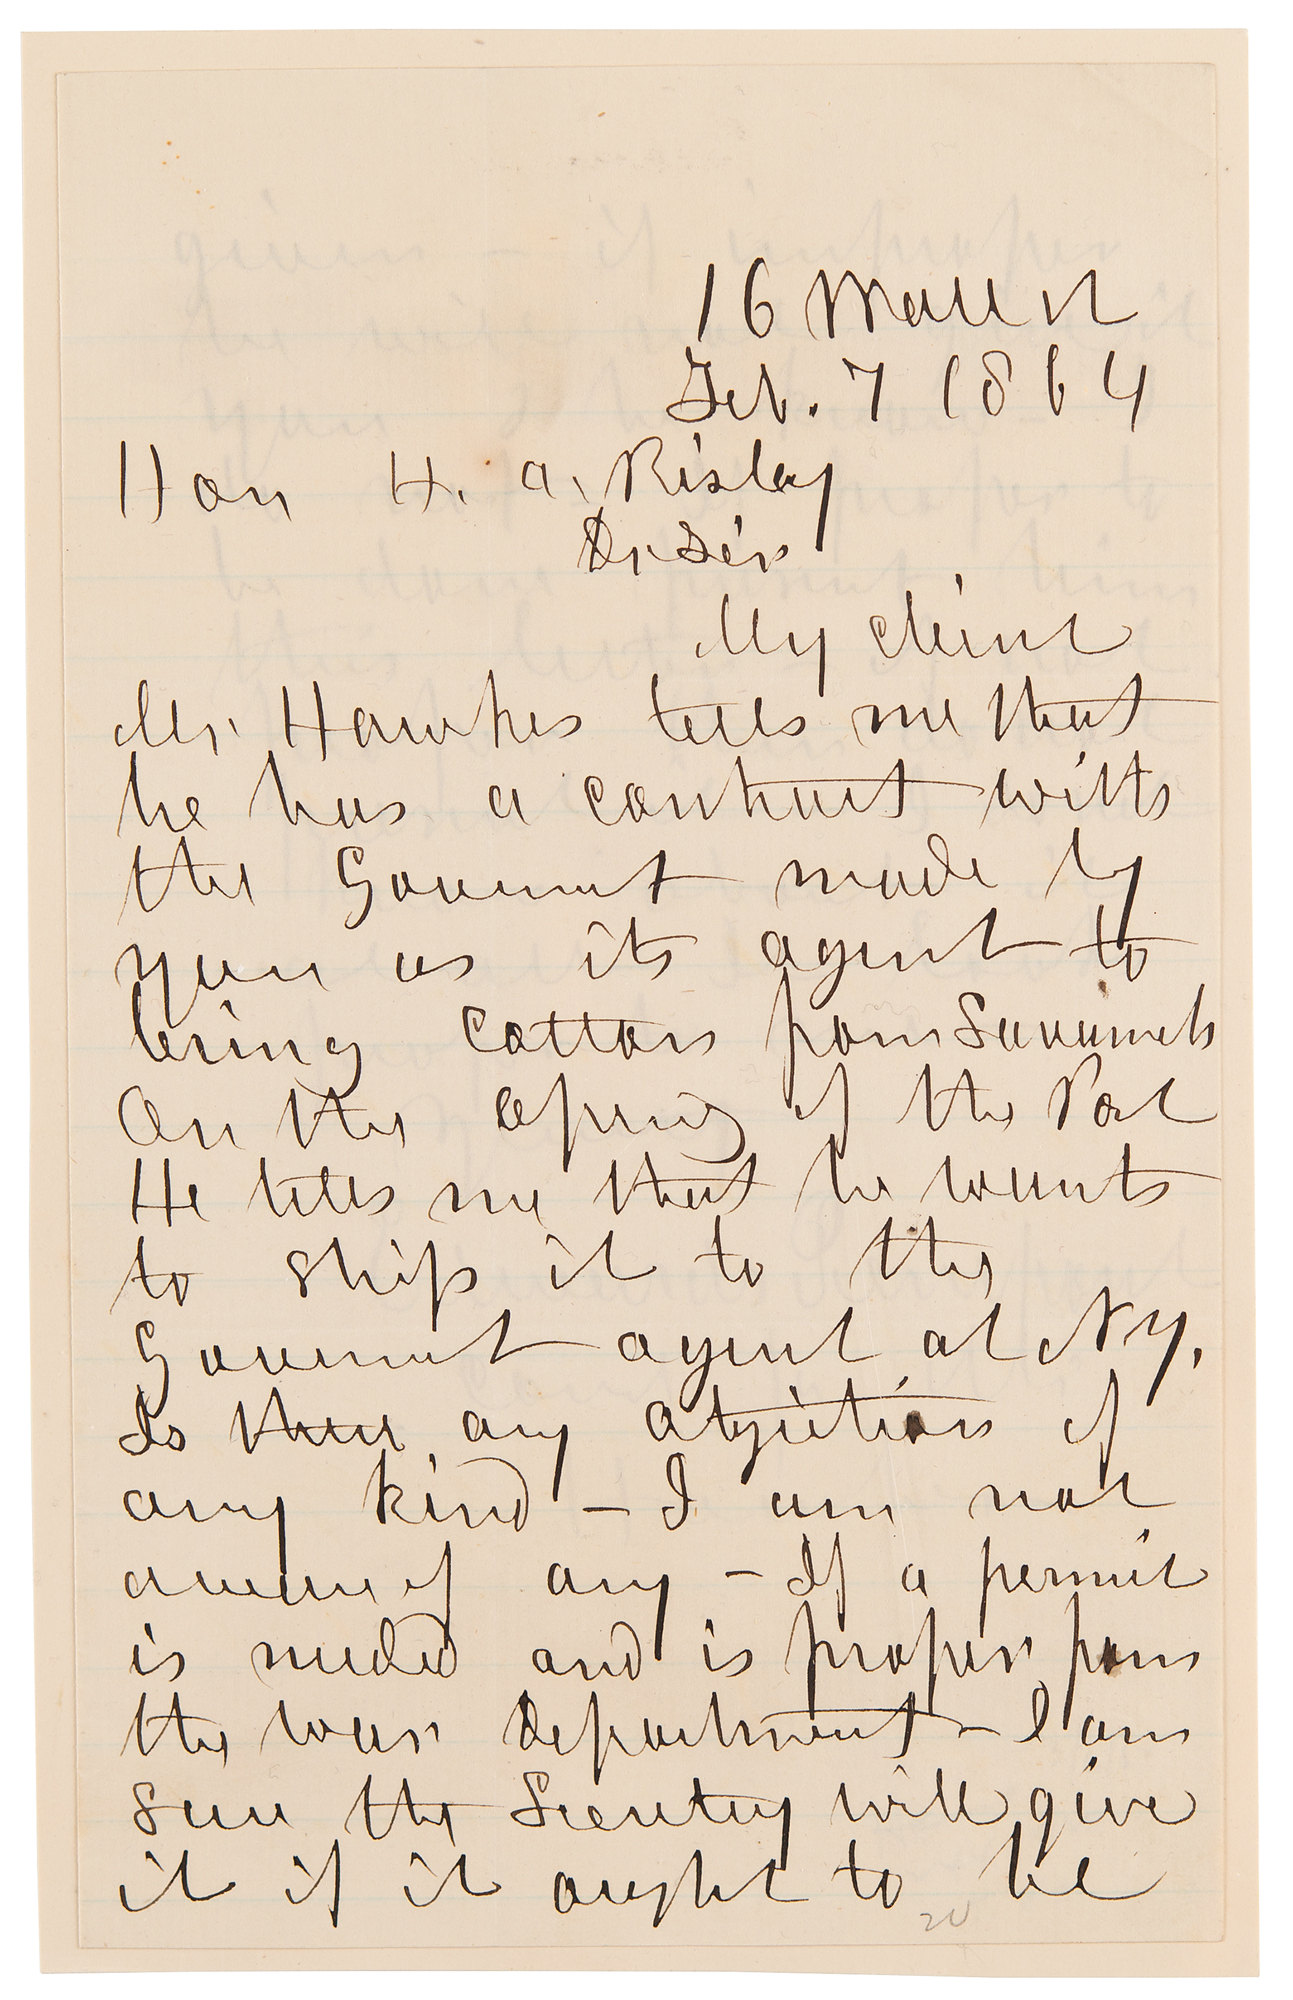 16 Wall st
Feb. 7 1864
Hon H. A. Risley
Dr Sir
My client
Mr. Hawkes tells me that
he has a contract with
the Goverment made by
you as its agent to
bring cotton from Savannah
On the opening of the Port
He tells me that he wants
to ship it to the
Goverment agent at NY,
Is there any objection of
any kind – I am not
aware of any – If a permit
is needed and is proper from
the war department – I am
sure the Secretary will give
it if it ought to be
20